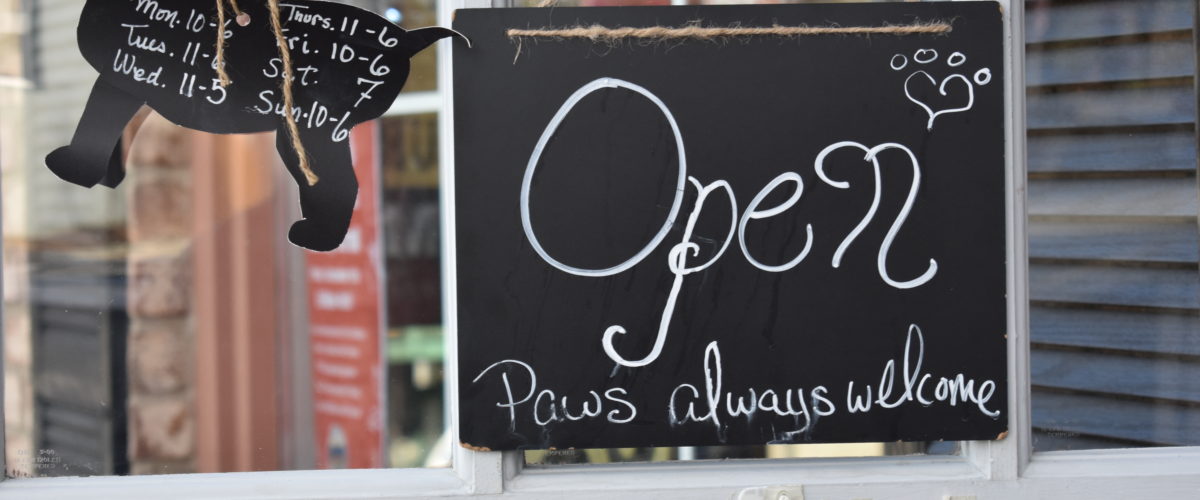 Mon. 10-6
Tues. 11-6
Wed. 11-5
Thurs. 11-6
Fri. 10-6
Sat. 7
Sun. 10-6
Open
Paws always welcome